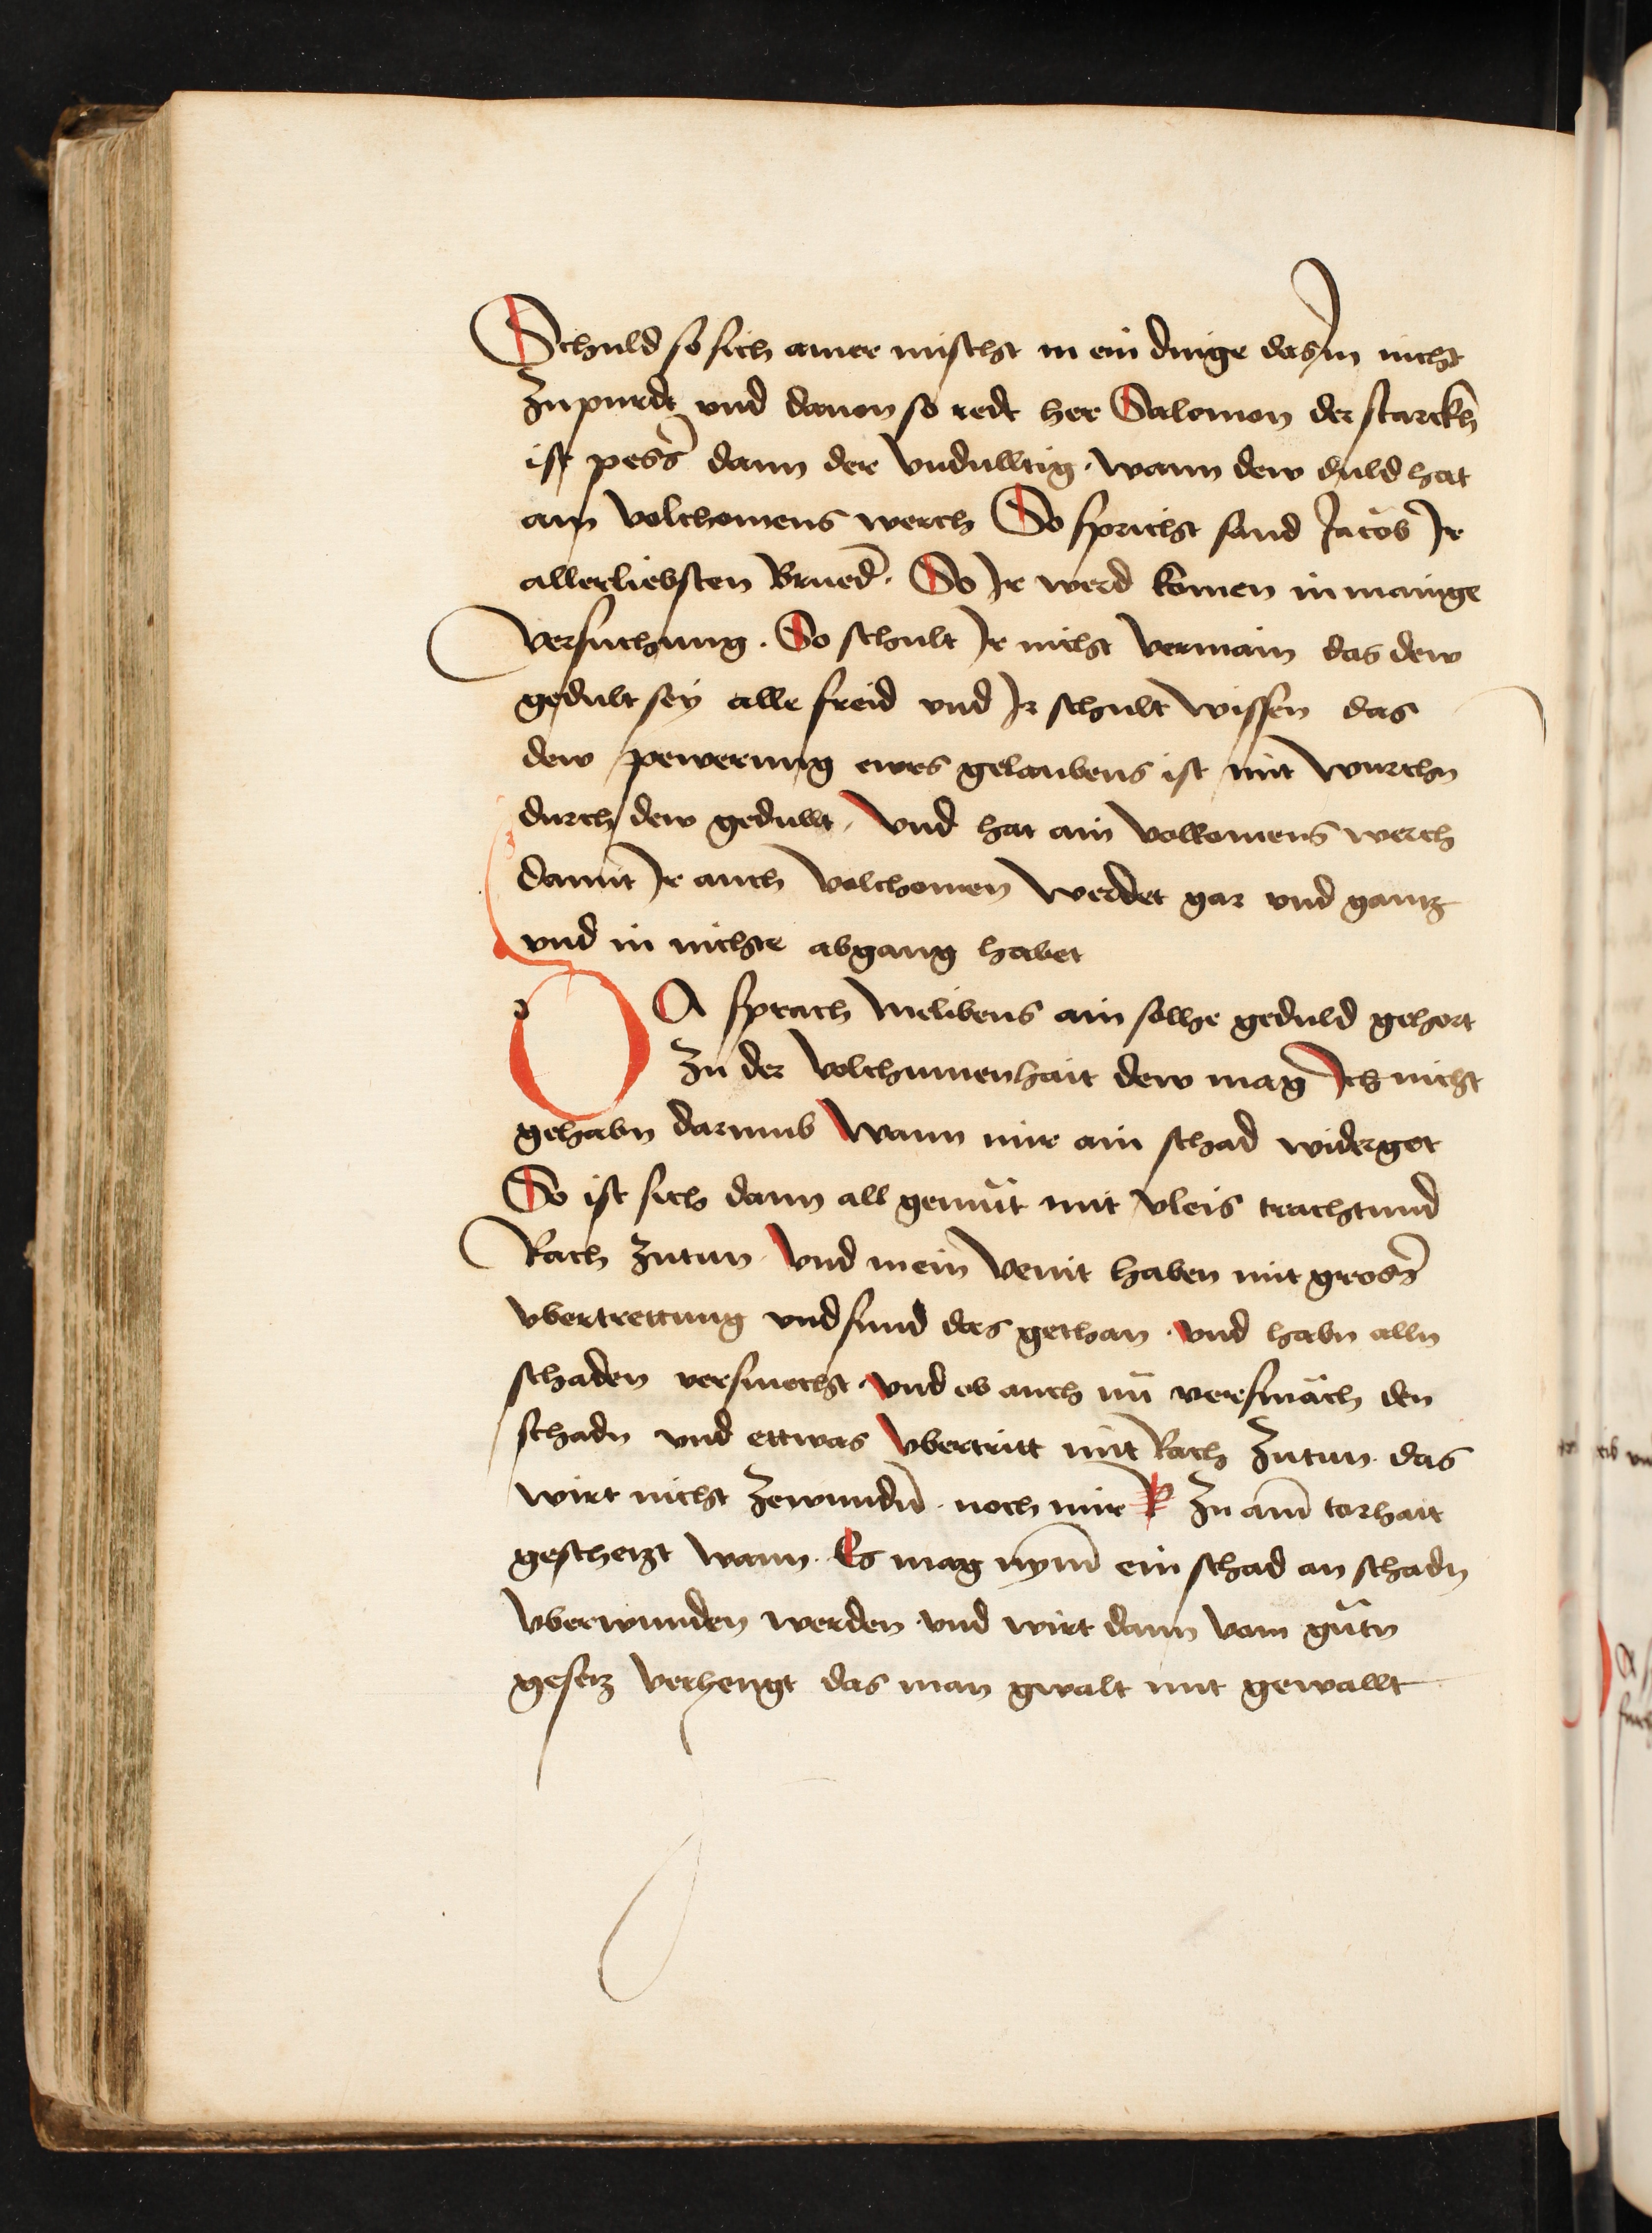 Schuld so sich ainer mischt in ein dinge das im nicht
zu purdt und dauon so redt her Salomon der starckh
ist pess̄ dann der vnduldtig · wann dew duld hat
ain volchomens werch So spricht sand Jacob Jr
allerliebsten Brued̄ · So Jr werd komen in mainge
versuchung · So schult Jr nicht vermain das dew
gedult sey alle freid vnd Jr schult wissen das
dew pewerung ewrs gelaubens ist mit wurchn
durch dew gedullt / vnd hat ain volkomens werch
damit Jr auch volchomen werdet gar vnd gantz
vnd in nichte abgang habet
DA sprach Melibeus ain solhe geduld gehort
zu der volchumenhait dew mag Ich nicht
gehabn darumb Wann mir ain schad widerget
So ist sich dann all gemüt mit vleis trachtund
Rach zutun · vnd mein veint haben mit gross̄
vbertrettung vnd sund das gethan · vnd habn alln
schaden versmecht · vnd ob auch nū versmäch den
schadn vnd ettwas vbertritt mit Rach zutun · das
wirt nicht zewundn̄ · noch mir zu aim̄ torhait
geschetzt wann · Es mag nym̄ ein schad an schadn
vberwunden werden vnd wirt dann vom gütn
gesetz verhengt das man gwalt mit gewallt